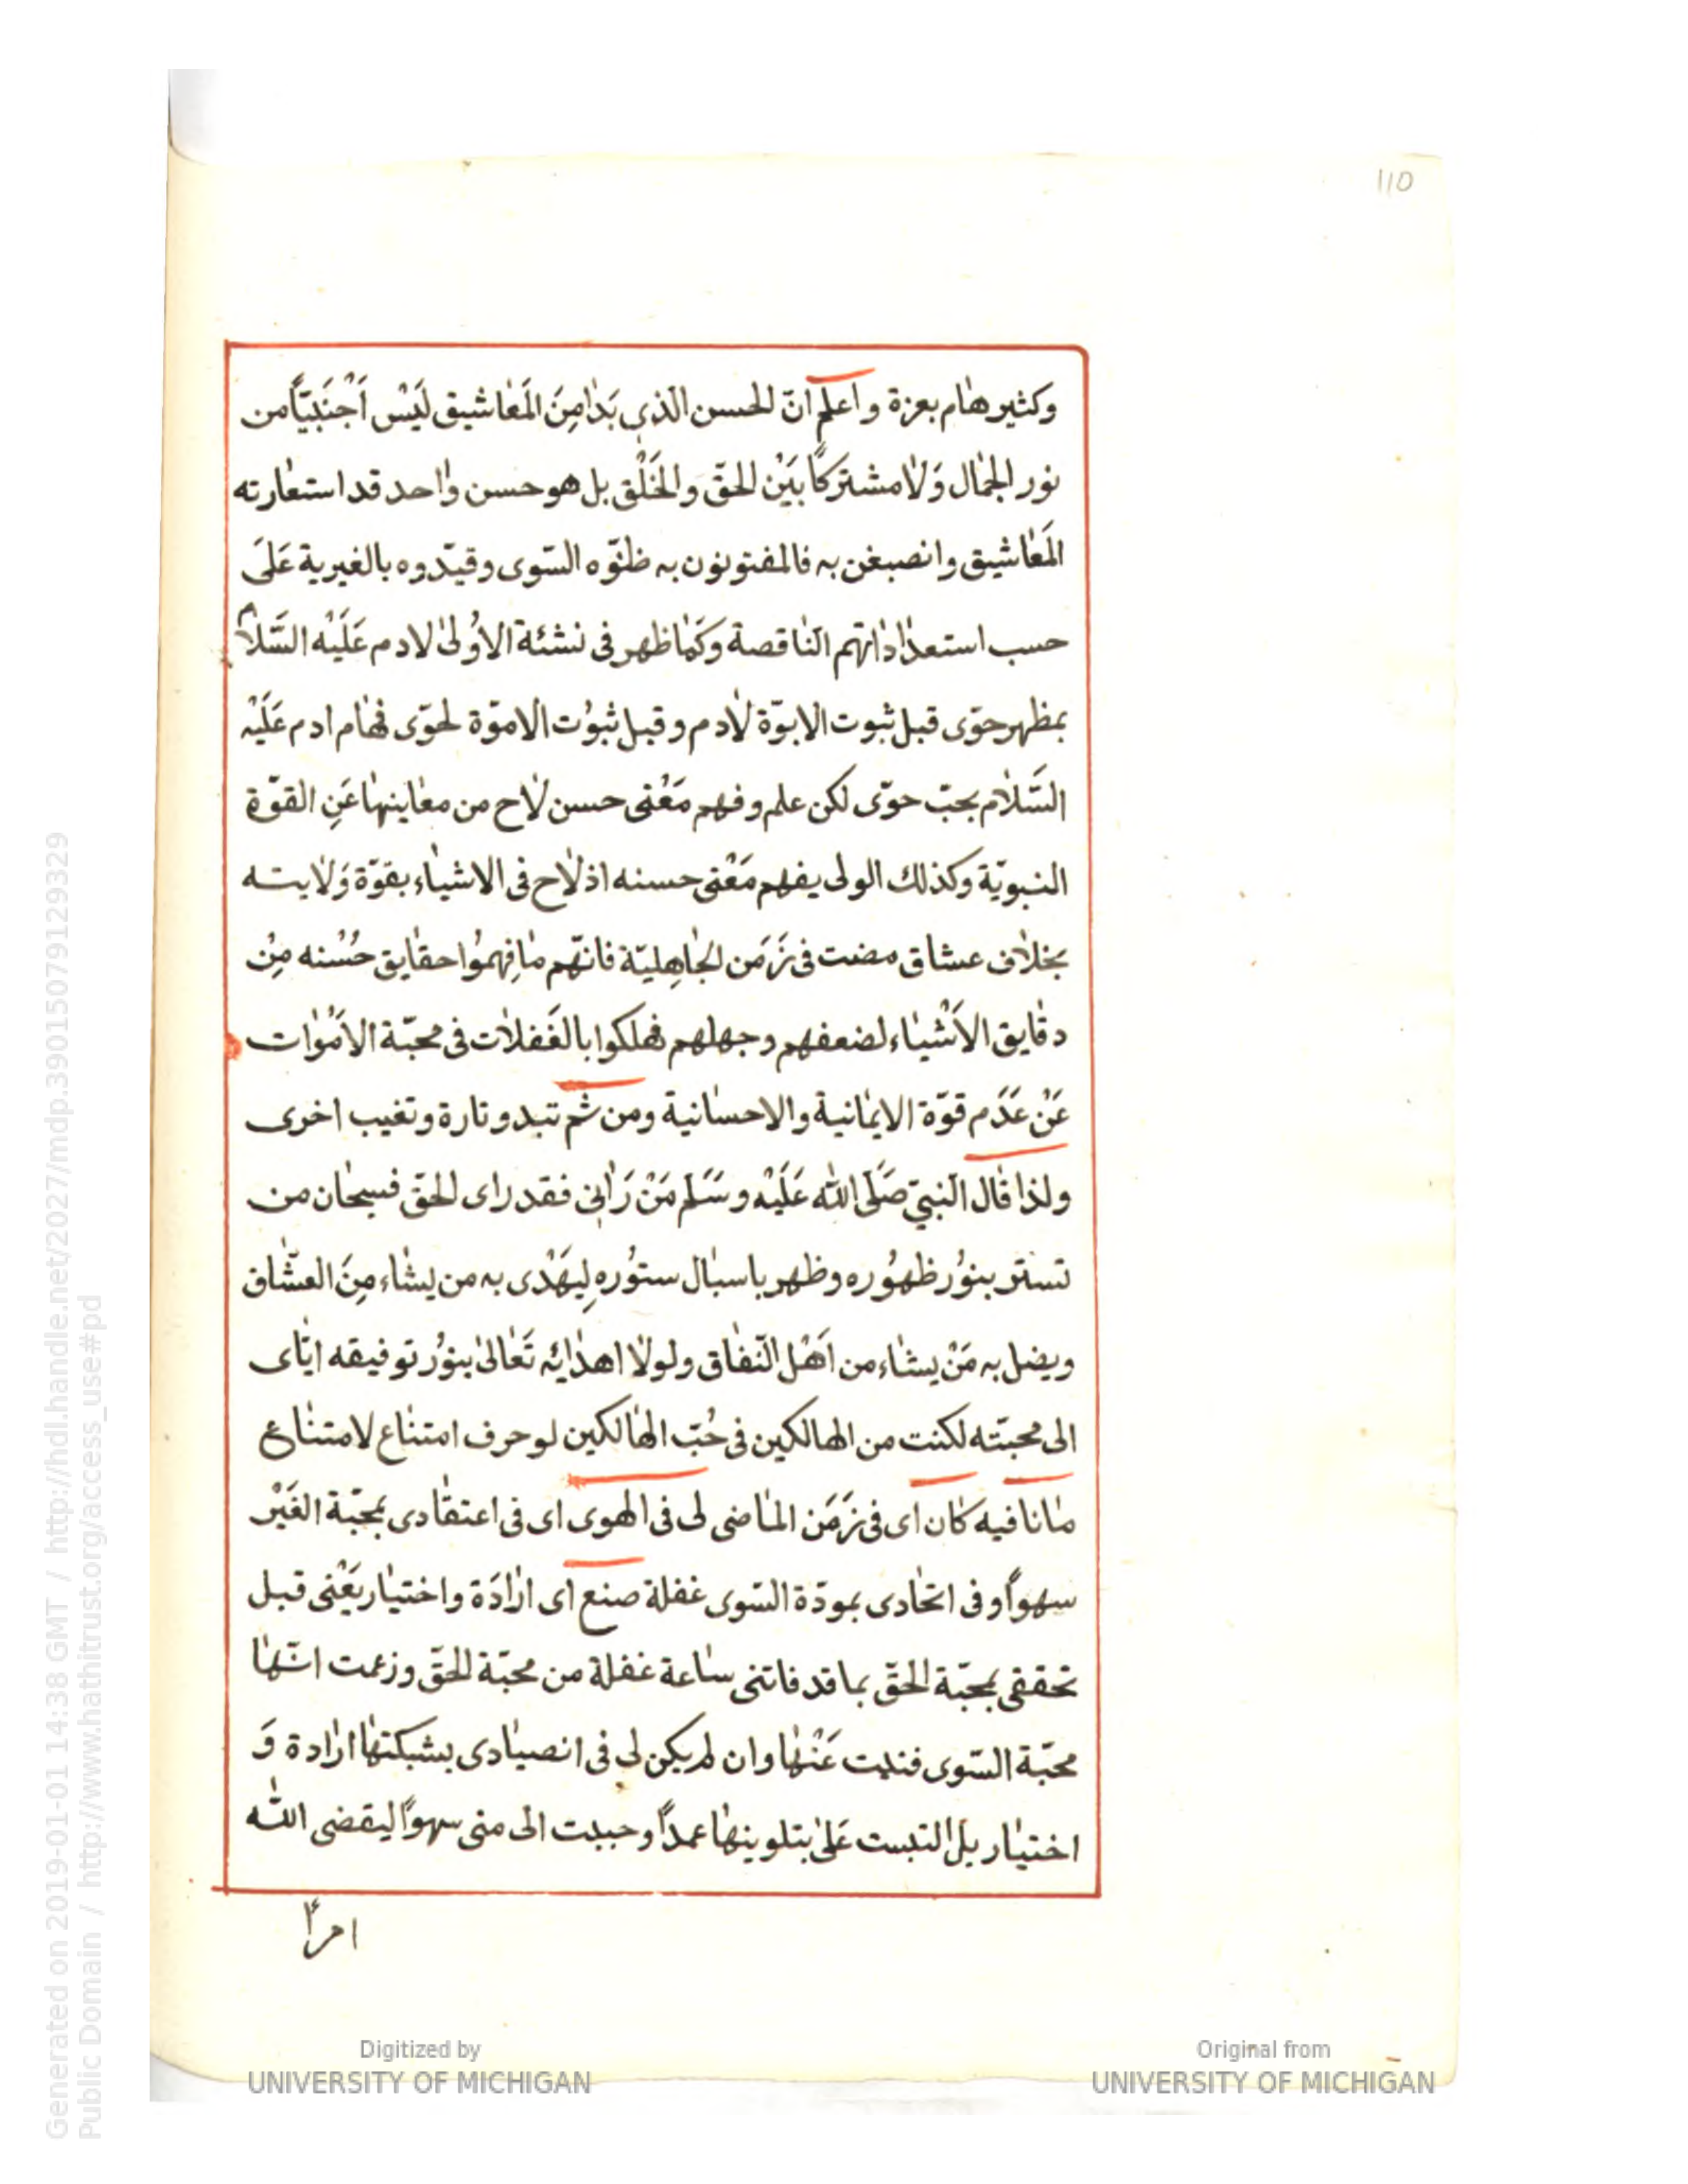 110
وكثير هام بعزة واعلم انّ الحسن الذى بَدا مِنَ المَعاشيق لَيْسَ اَجْنَبيّاً من
نور الجمال وَلا مشتركاً بَيْن الحقّ والخَلْق بل هو حسن واحد قد استعارته
المَعاشيق وانصبغن به فالمفتونون به ظنّوه السّوى وقيّدوه بالغيرية عَلىَ
حسب استعداداتهم النّاقصة وكَما ظهر فى نشئة الاُولى لادم عَلَيْه السَّلام
بمظهر حوّى قبل ثبوت الابوّة لادم وقبل ثبُوت الاموّة لحوّى فهام ادم عَلَيْه
السَّلام بحبّ حوّى لكن علم وفهم مَعْنى حسن لاح من معاينها عَنِ القوّة
النبويّة وكذلك الولى يفهم مَعْنى حسنه اذ لاح فى الاشياء بقوّة وَلايته
بخلاف عشاق مضت فى زَمَن الجاهِليّة فانّهم ما فِهمُوا حقايق حُسْنه مِنْ
دقايق الاَشْياء لضعفهم وجهلهم فهلكوا بالغَفلات فى محبّة الاَمْوات
عَنْ عَدَم قوّة الايمانية والاحسانية ومن ثم تبدو تارة وتغيب اخرى
ولذا قال النّبىّ صَلَّى الله عَلَيْه وسَلَّم مَنْ رَانى فقد راى الحقّ فسبحان من
تستّر بنُور ظهُوره وظهر باسبال ستُوره لِيَهْدى به من يشاء مِنَ العشّاق
ويضل به مَنْ يشاء من اَهْل النّفاق ولولا اهدائه تَعالىٰ بنُور توفيقه ايّاى
الى محبّته لكنت من الهالكين فى حُبّ الهالكين لو حرف امتناع لامتناع
ما نافيه كان اى فى زَمَن الماضى لى فى الهوى اى فى اعتقادى بمحبّة الغَيْر
سهواً وفى اتحادى بمودّة السّوى غفلة صنع اى ارادَة واختيار يَعْنى قبل
تحققى بمحبّة الحقّ بما قد فاتنى ساعة غفلة من محبّة الحقّ وزعمت انّها
محبّة السّوى فندمت عَنْها وان لم يكن لى فى انصيادى بشبكتها ارادة وَ
اختيار بل التبست عَلىٰ بتلوينها عمداً وحببت الى منى سهواً ليقضى الله
امراً
Generated on 2019-01-01 14:38 GMT / http://hdl.handle.net/2027/mdp.39015079129329
Public Domain / http://www.hathitrust.org/access_use#pd
Digitized by
UNIVERSITY OF MICHIGAN
Original from
UNIVERSITY OF MICHIGAN